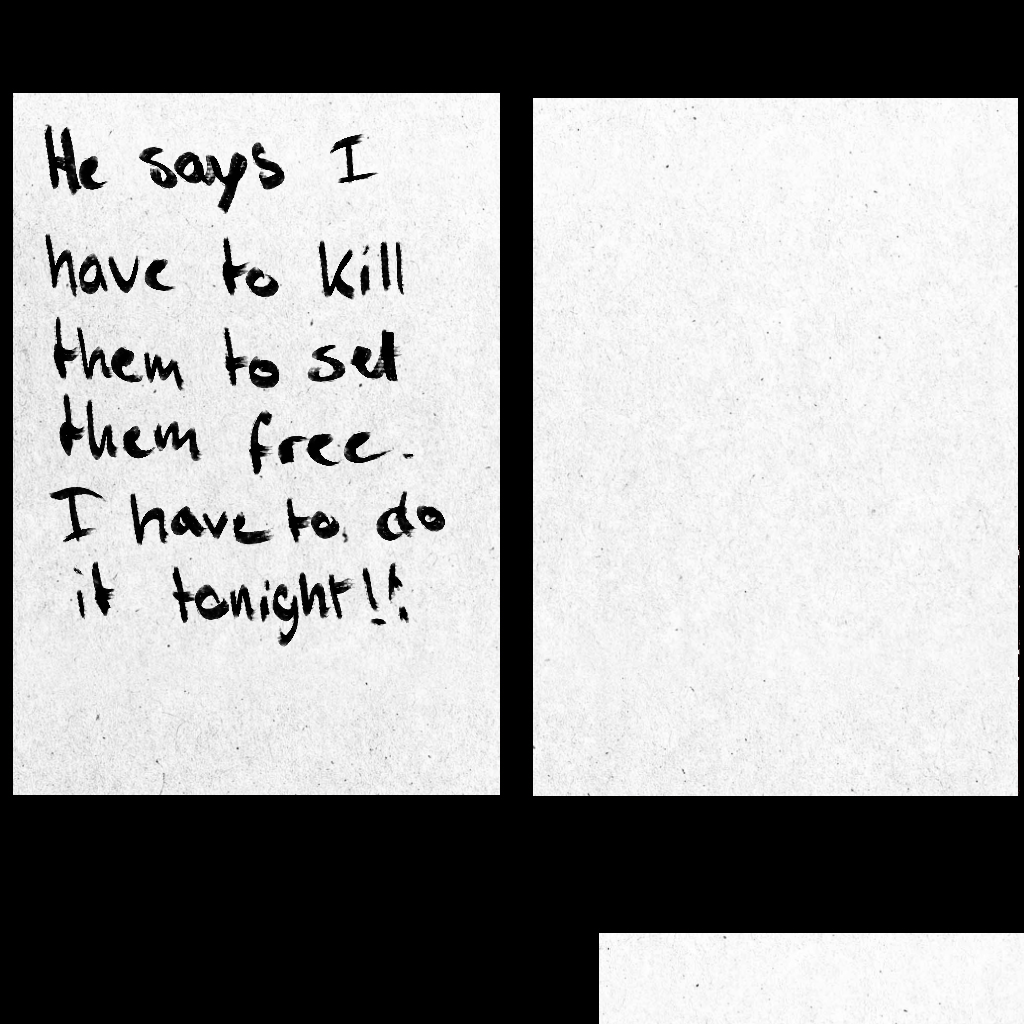 He says I
have to kill
them to set
them free.
I have to do
it tonight!!